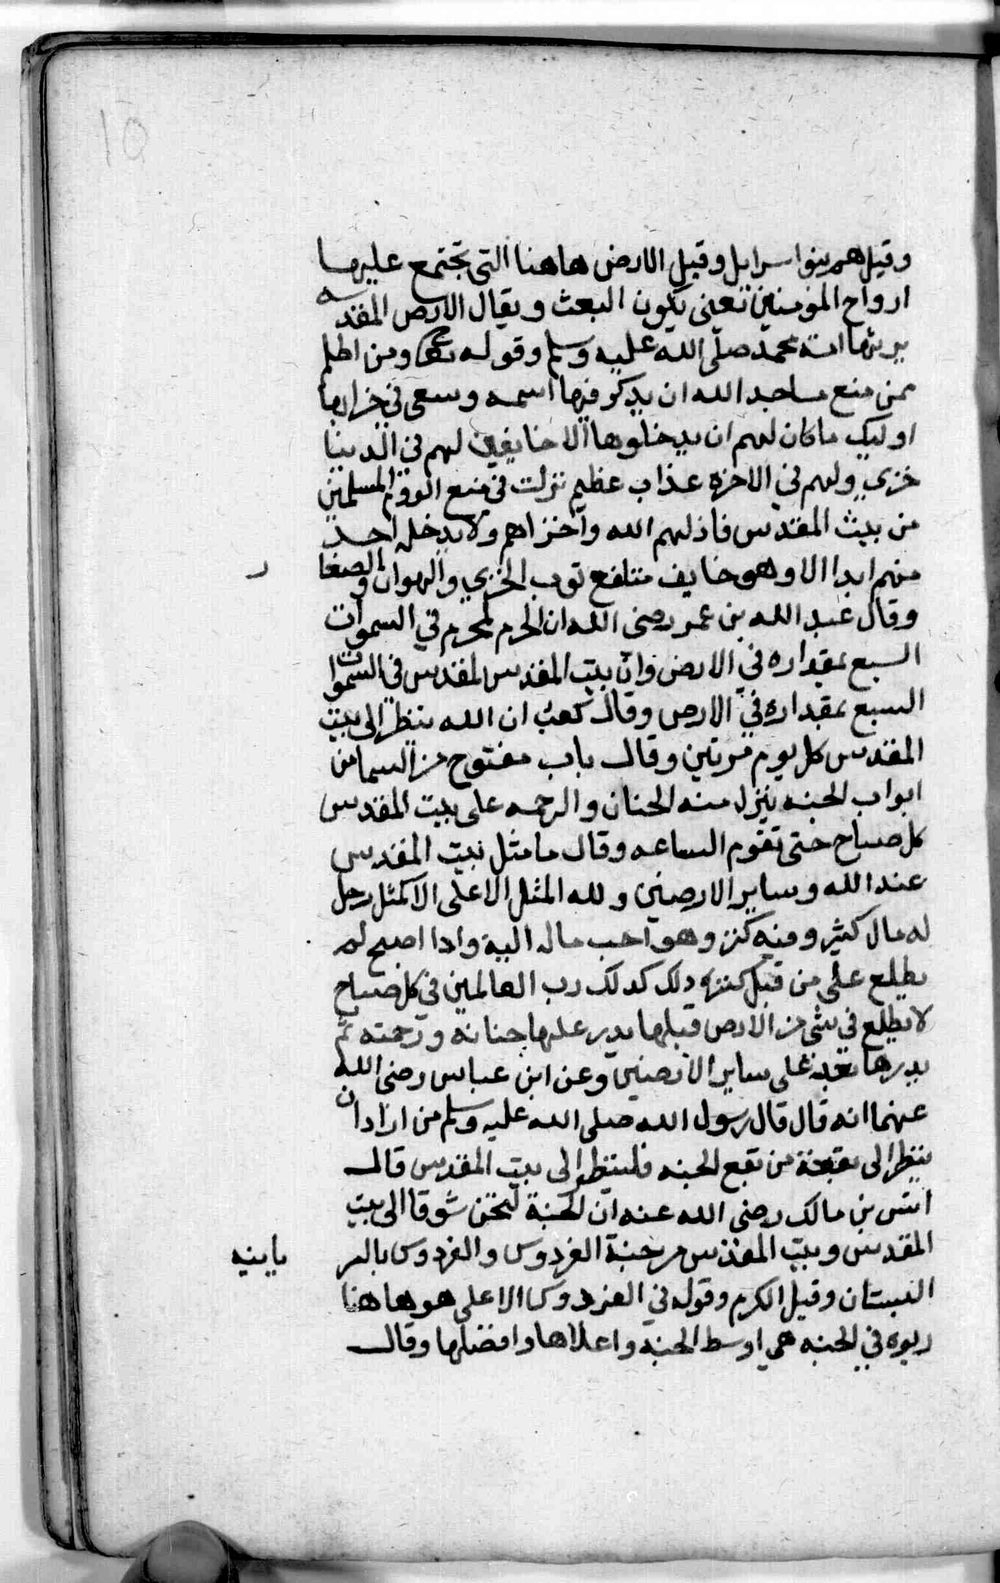 ١٥
وقيل هم بنوا اسرايل وقيل الارض هاهنا التى تجتمع عليها
ارواح المومنين تعنى يكون البعث ويقال الارض المقدسه
يرثها امة محمد صلى الله عليه وسلم وقوله تعالى ومن اظلم
ممن منع مساجد الله ان يذكر فيها اسمه وسعى فى خرابها
اوليك ما كان لهم ان يدخلوها الا خايفين لهم فى الدنيا
خزي ولهم في الاخرة عذاب عظيم نزلت فى منع الروم المسلمين
من بيت المقدس فاذلهم الله واخزاهم ولا يدخله احد
منهم ابدا الا وهو خايف متلفع ثوب الخزي والهوان والصغا
ر
وقال عبد الله بن عمر رضى الله ان الحرم لمحرم في السموات
السبع بمقداره في الارض وان بيت المقدس لمقدس فى السموات
السبع بمقداره في الارض وقال كعب ان الله ينظر الى بيت
المقدس كل يوم مرتين وقال باب مفتوح من السما من
ابواب الجنه ينزل منه الحنان والرحمه على بيت المقدس
كل صباح حتى تقوم الساعه وقال ما مثل بيت المقدس
عند الله وساير الارضين ولله المثل الاعلى الا كمثل رجل
له مال كثير ومنه كنز وهو احب ماله اليه واذا اصبح لم
يطلع على من قبل كنزه ذلك كذلك رب العالمين فى كل صباح
لا يطلع في شى من الارض قبلها يدر عليها حنانه ورحمته ثم
يدرها بعد على ساير الارضين وعن ابن عباس رضى الله
عنهما انه قال قال رسول الله صلى الله عليه وسلم من اراد ان
ينظر الى بقعة من بقع الجنه فلينظر الى بيت المقدس قال
انس بن مالك رضى الله عنه ان الجنة لتحن شوقا الى بيت
المقدس وبيت المقدس من جنة الفردوس والفردوس بالسر
يانيه
البستان وقيل الكرم وقوله في الفردوس الاعلى هو هاهنا
ربوه في الجنه هي اوسط الجنه واعلاها وافضلها وقال